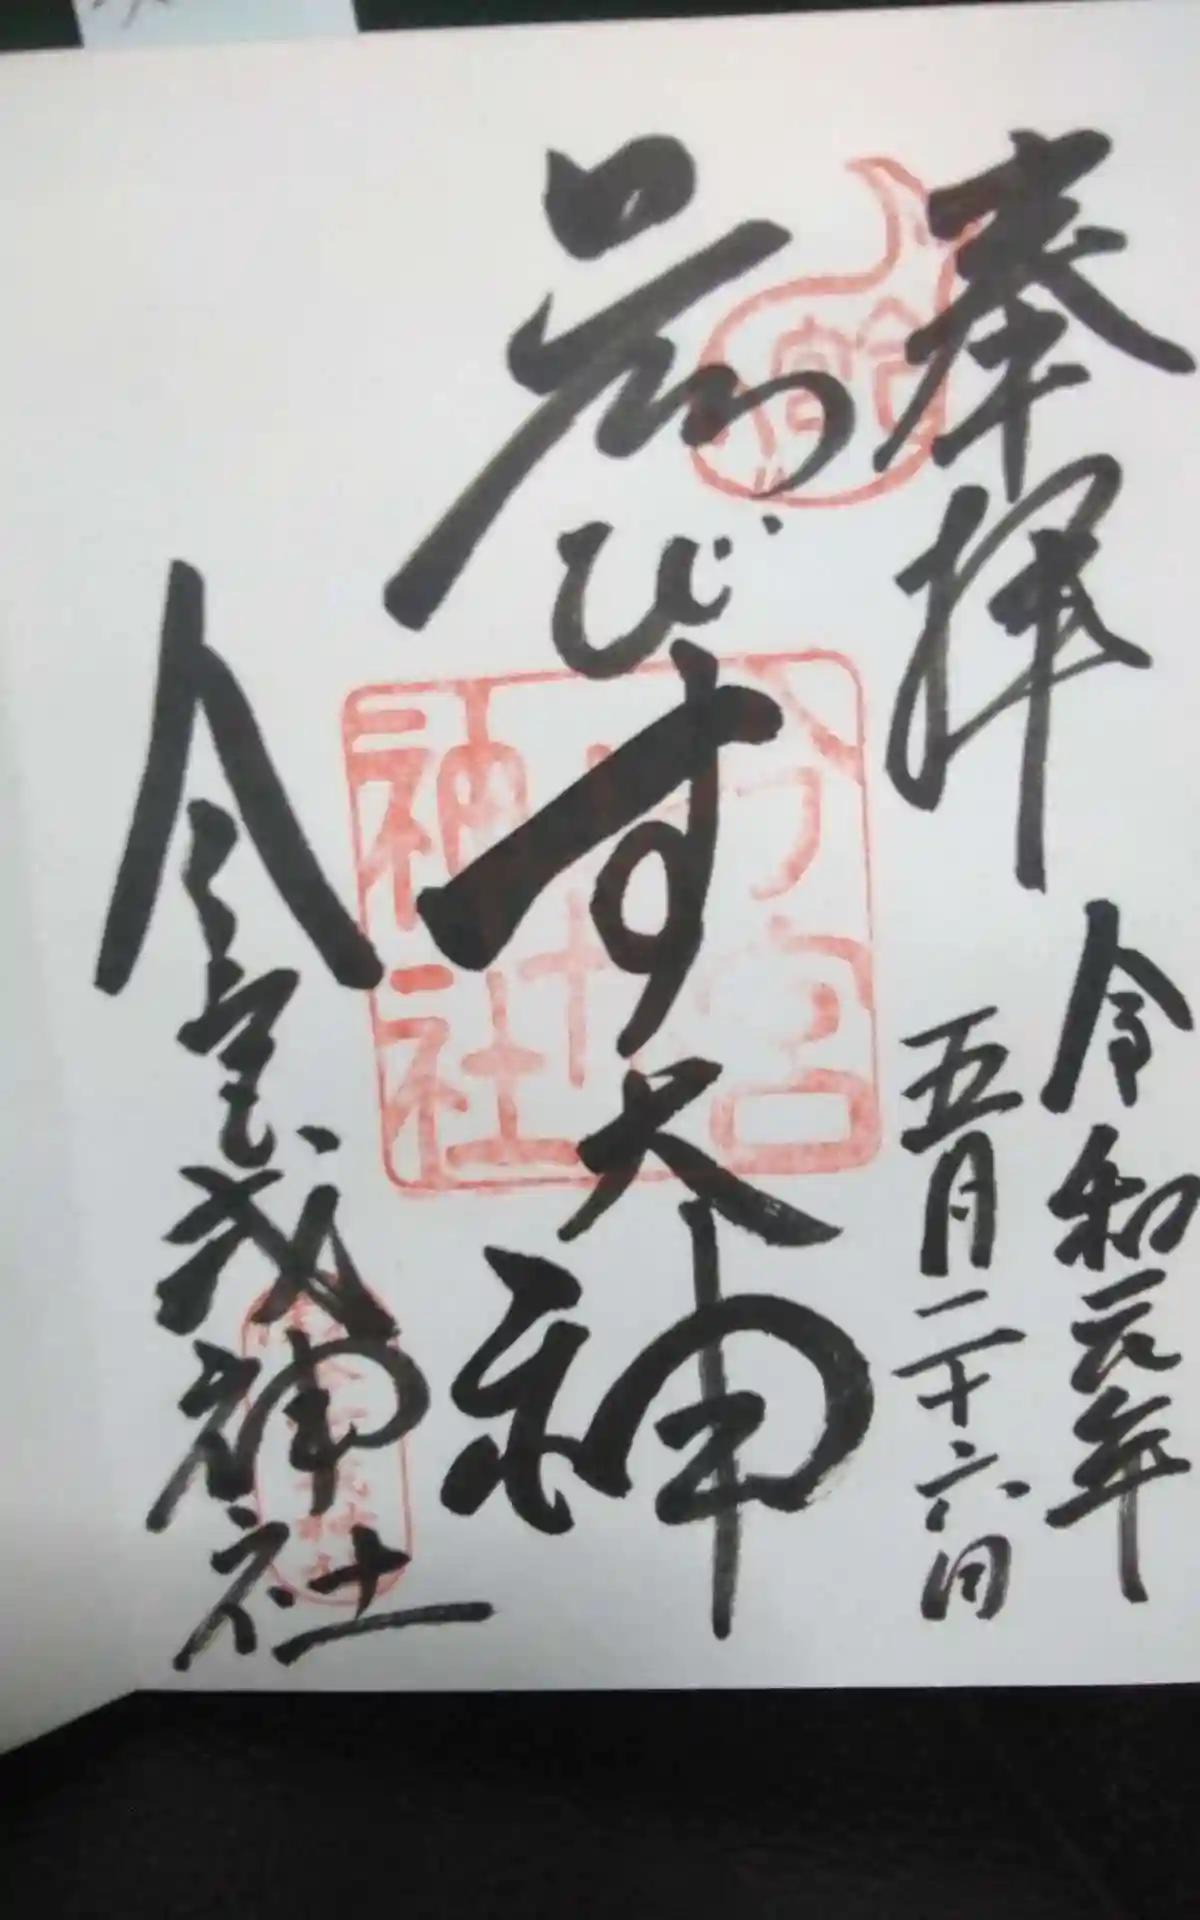 奉拝
令和元年
五月二十六日
ゑびす大神
今宮戎神社
今宮戎神社